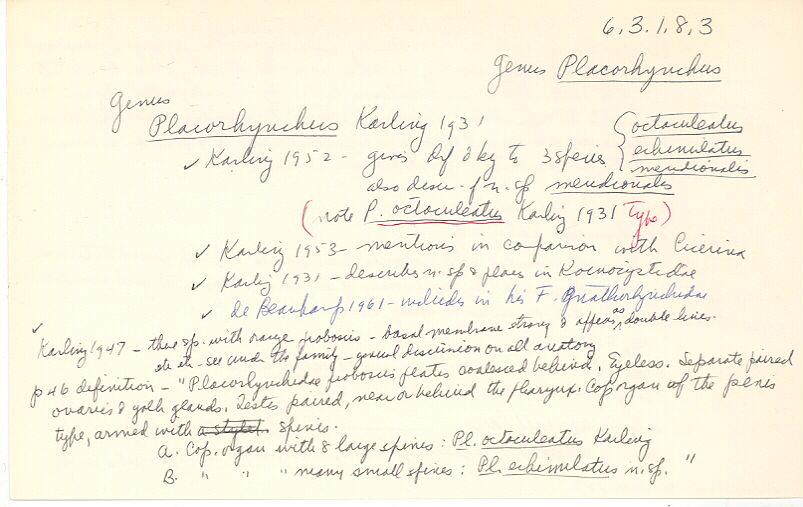 6.3.1.8.3
Genus Placorhynchus
Genus
Placorhynchus Karling 1931
✓ Karling 1952 - gives def & key to 3 species { octaculeatus
echinulatus
meridionalis
also descr. of n. sp meridionalis
(note P. octaculeatus Karling 1931 Type)
✓ Karling 1953 - mentions in comparison with Cicerina
✓ Karling 1931 - describes n. sp & places in Koinocystidae
✓ de Beauchamp 1961 - includes in his F. Gnathorhynchidae
✓
Karling 1947 - these sp. with orange proboscis - basal membrane strong & appears as double lines.
etc etc - see under the family - general discussion on all anatomy
p 46 definition - "Placorhynchidae proboscis plates coalesced behind. Eyeless. Separate paired
ovaries & yolk glands. Testes paired, near or behind the pharynx. Cop organ of the penis
type, armed with a stylet. spines.
A. Cop. organ with 8 large spines : Pl. octaculeatus Karling
B. " " " many small spines : Pl. echinulatus n. sp. "